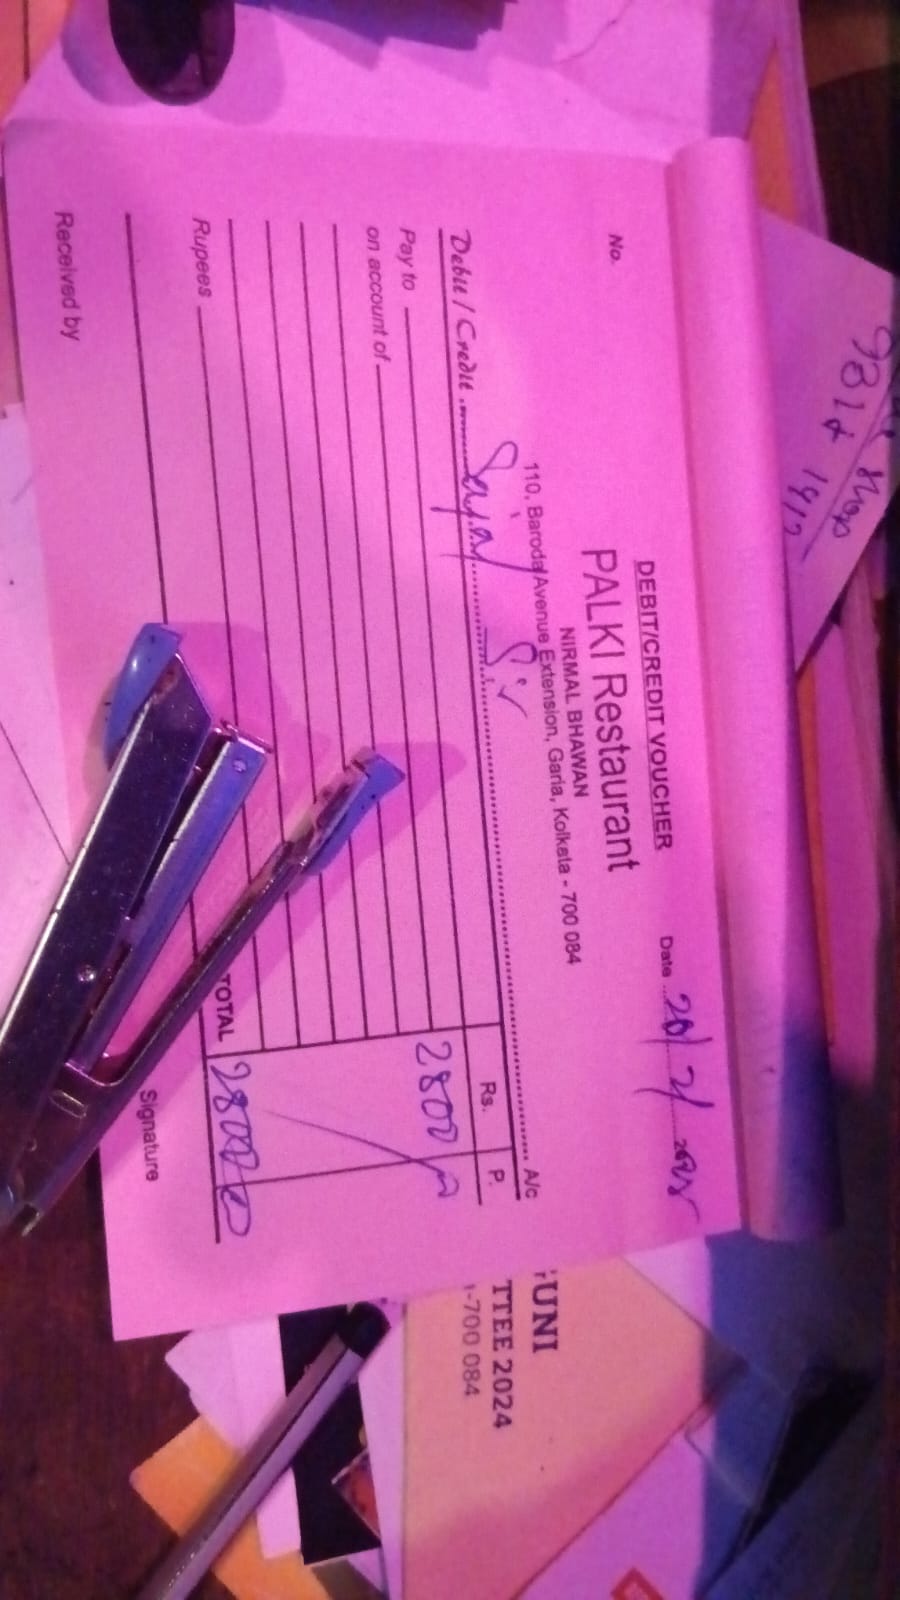 DEBIT/CREDIT VOUCHER
No.
PALKI Restaurant
Date 20/2/2025
NIRMAL BHAWAN
110, Baroda Avenue Extension, Garia, Kolkata - 700 084
Debit / Credit Sajal Sir A/c
Rs. P.
Pay to 2800
on account of
TOTAL 2800
Rupees
Received by
Signature
TTEE 2024
-700 084